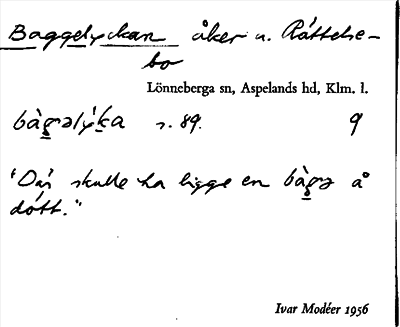 Baggelyckan åker u. Råttele-
bo
Lönneberga sn, Aspelands hd, Klm. l.
bàg̥əlýk̥a s. 89. 9
"Där skulle ha ligge en bàg̥ə å
dött."
Ivar Modéer 1956